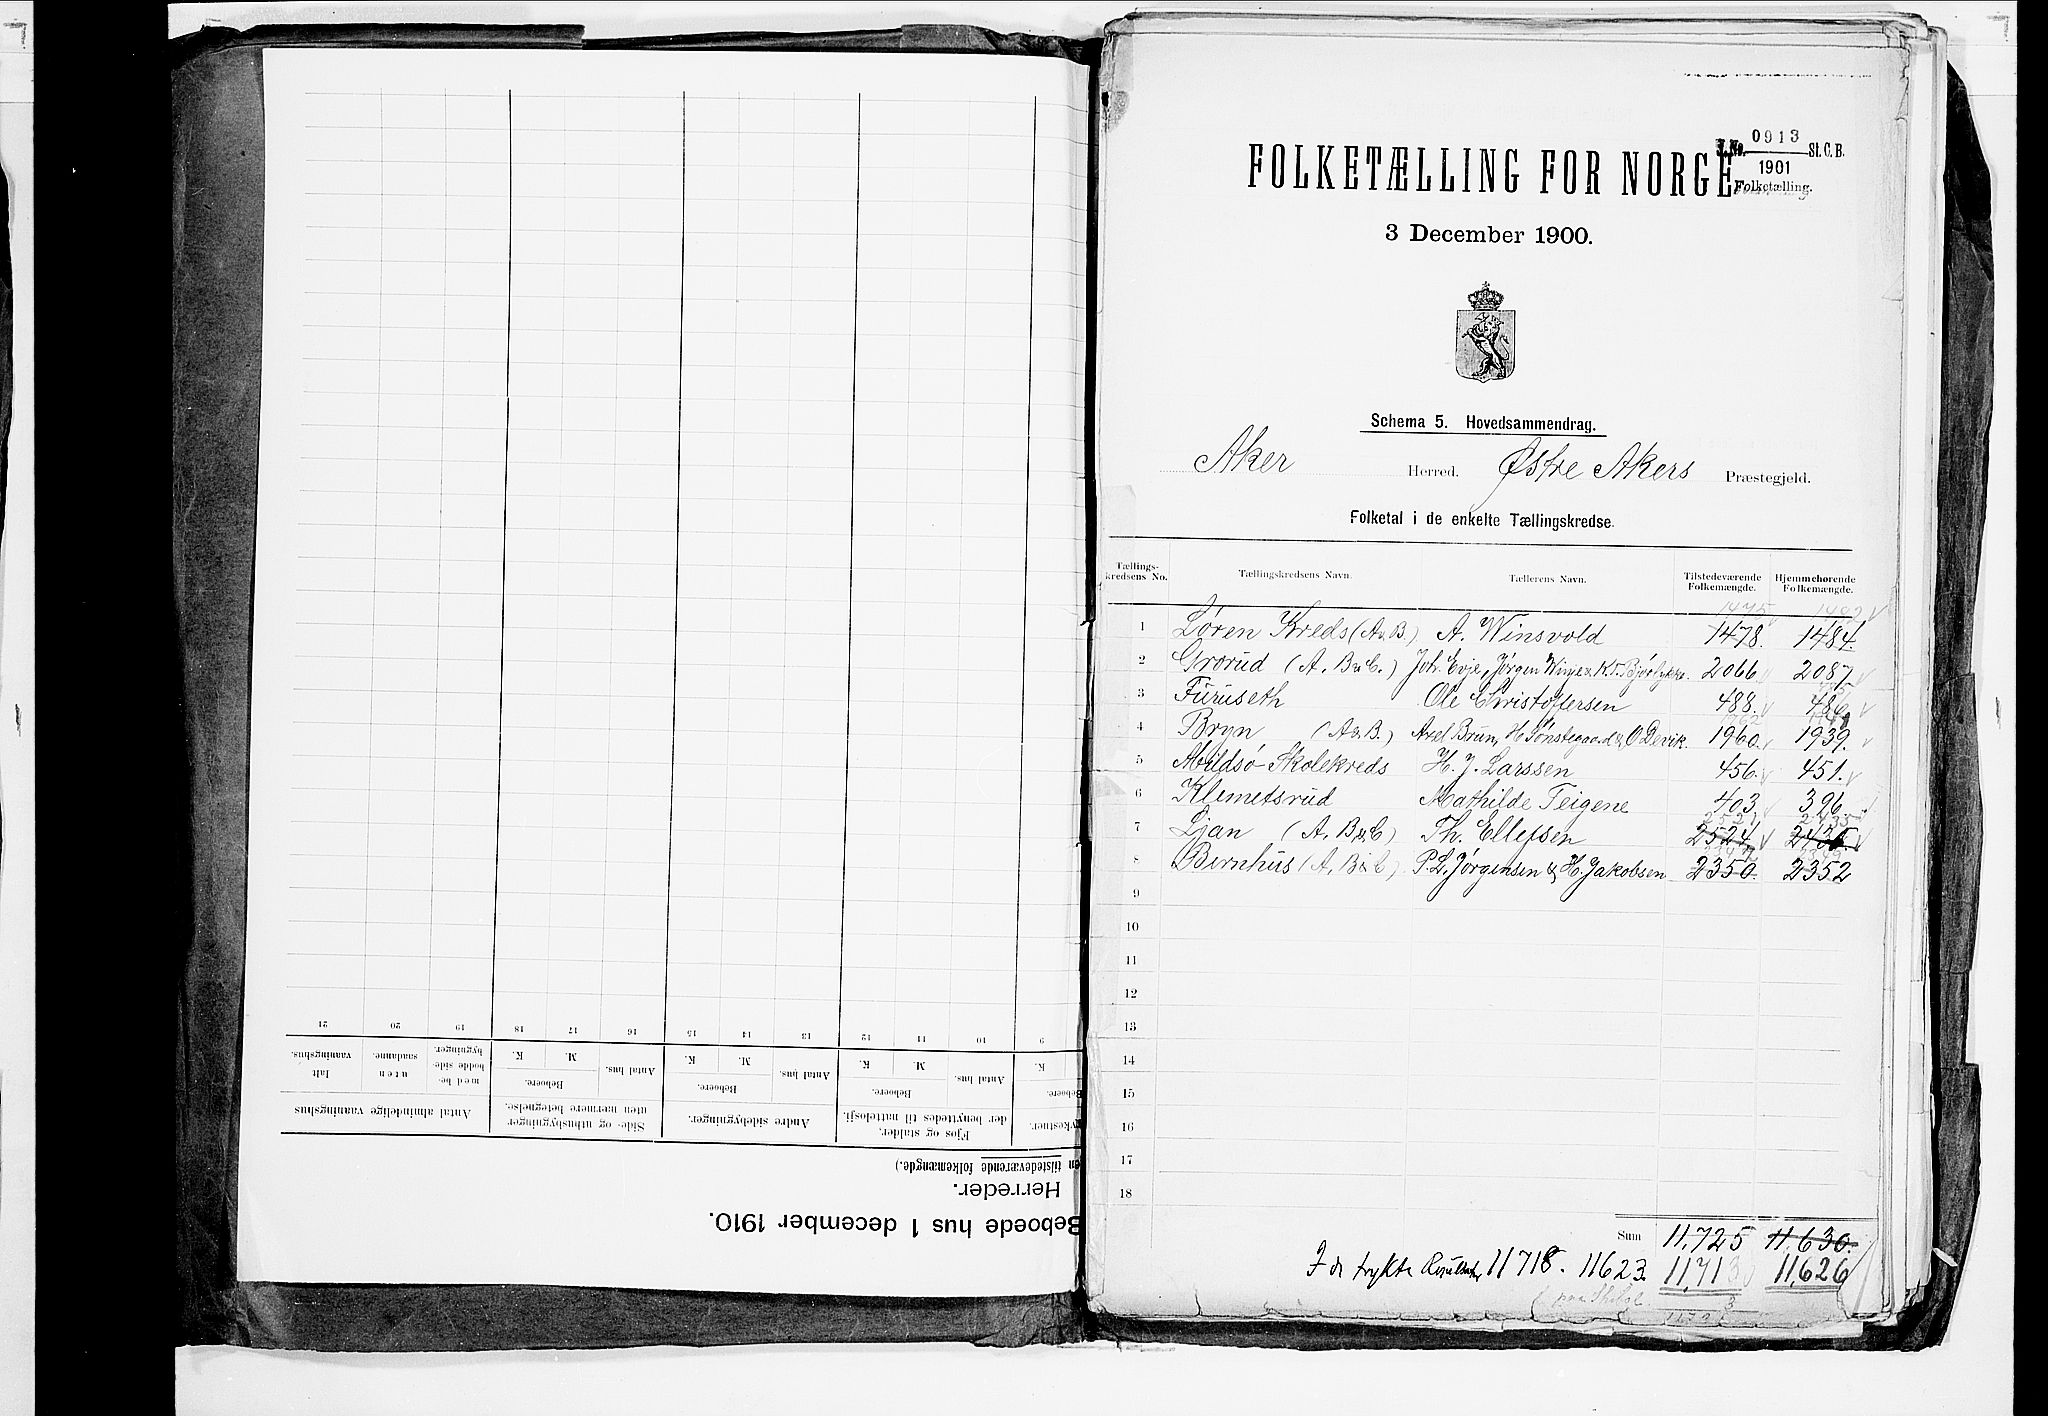 Beboede hus 1 december 1910.
Herreder.
tilstedeværende folkemængde.)
Fjos og stalder, der benyttedes til natteløsji.
Andre sidebygninger.
Side- og uthusbygninger uten nærmere betegnelse.
Antal almindelige vaaningshus
Beboere. Antal hus. Beboere. Antal hus. Beboere. Antal hus. Beboere.
K. M. K. M. K. M. K.
med bebodde sidebygninger. uten saadanne. Ialt vaaningshus.
9 10 11 12 13 14 15 16 17 18 19 20 21
J. No. 0913 St. C. B.
1901
Folketælling.
FOLKETÆLLING FOR NORGE
3 December 1900.
Schema 5. Hovedsammendrag.
Aker Herred. Østre Akers Præstegjeld.
Folketal i de enkelte Tællingskredse.
Tællingskredsens No. Tællingskredsens Navn. Tællerens Navn. Tilstedeværende Folkemængde. Hjemmehørende Folkemængde.
1475 1482
1 Løren Kreds (A. B.) A. Winsvold 1478. 1484.
2 Grorud (A. B & C.) Joh. Evje, Jørgen Winje & K. T. Bjørlykke. 2066. 2087.
3 Furuseth Ole Christoffersen 488. 486.
1962
4 Bryn (A & B.) Axel Brun, H Sønstegaard & O Devik. 1960. 1939.
5 Skolekreds H. J. Larssen 456. 451.
6 Klemetsrud Mathilde Teigene 403. 396.
2521 2435
7 Ljan (A. B & C) Th. Ellefsen 2524.
8 Bernhus (A. B & C) P. L. Jørgensen & H. Jakobsen 2350. 2352
9
10
11
12
13
14
15
16
17
18
Sum 11,725 11,630.
I de trykte 11718. 11623. 11,713 11,626
3